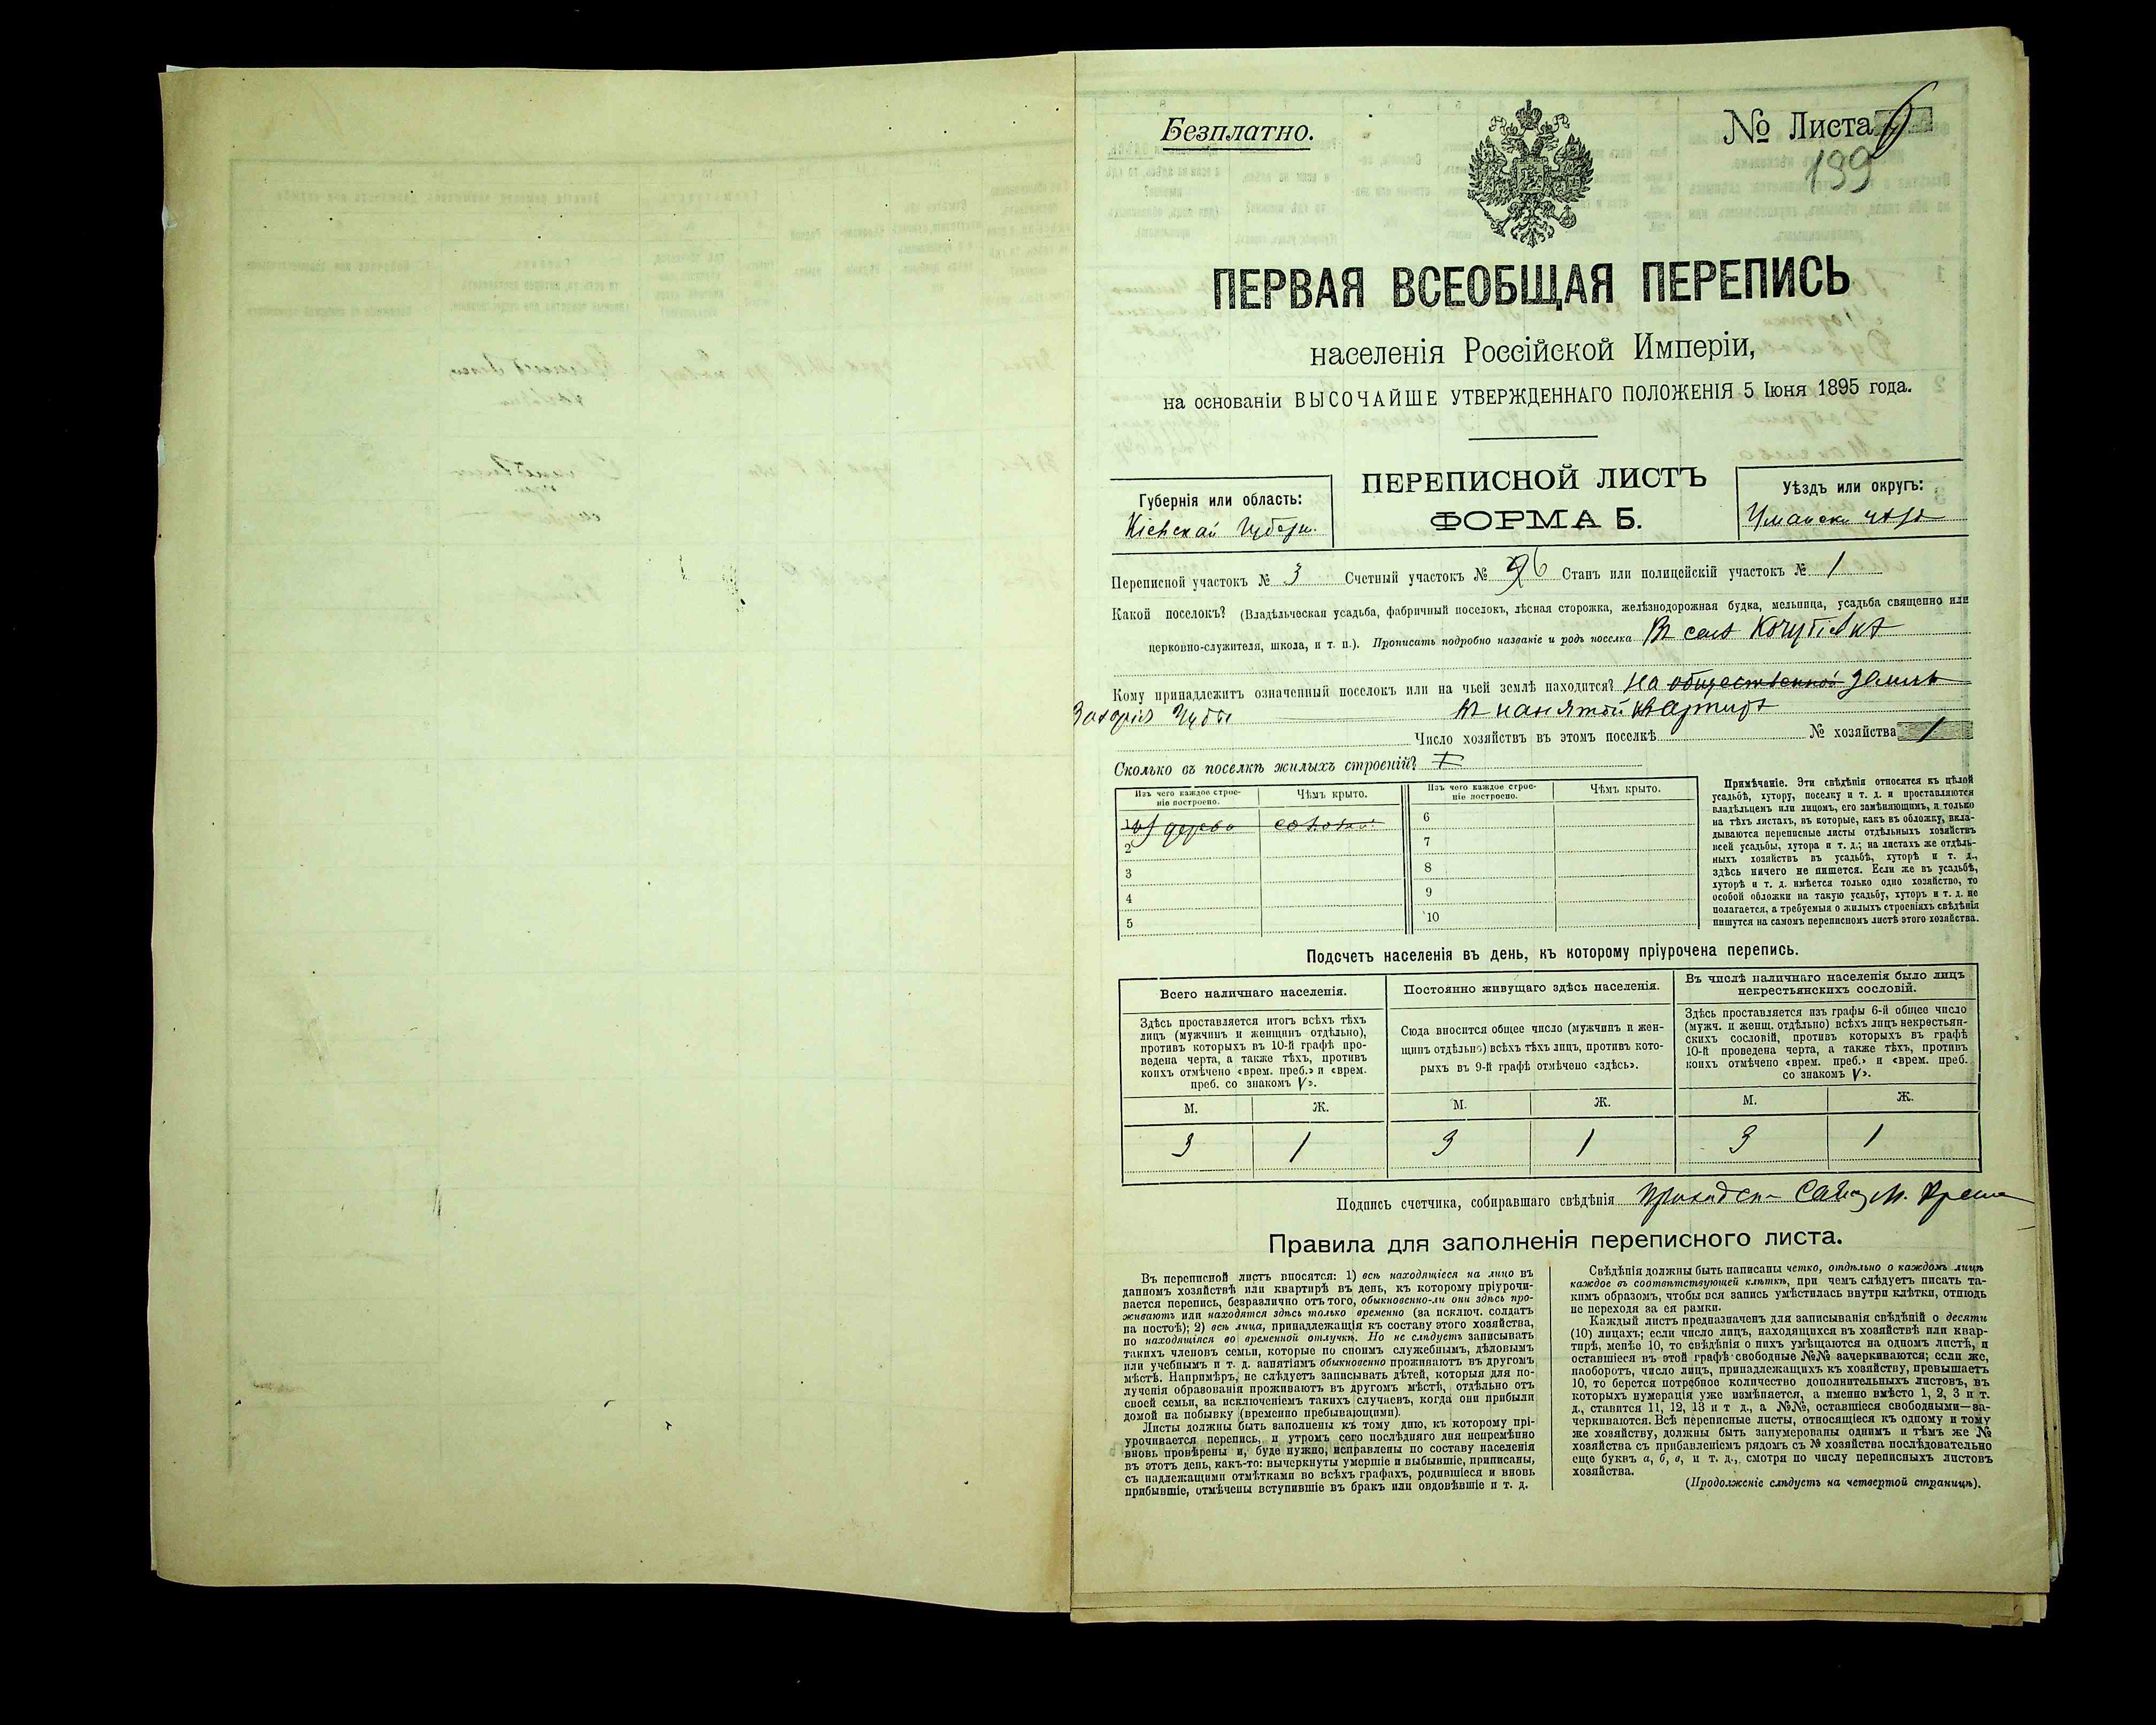 Безплатно.
№ Листа 6
199
ПЕРВАЯ ВСЕОБЩАЯ ПЕРЕПИСЬ
населенія Россійской Имперіи,
на основаніи ВЫСОЧАЙШЕ УТВЕРЖДЕННАГО ПОЛОЖЕНІЯ 5 Іюня 1895 года.
ПЕРЕПИСНОЙ ЛИСТЪ
ФОРМА Б.
Губернія или область:
Кіевская Губерн.
Уѣздъ или округъ:
Уманскі
Переписной участокъ № 3 Счетный участокъ № 6 Станъ или полицейскій участокъ № 1
Какой поселокъ? (Владѣльческая усадьба, фабричный поселокъ, лѣсная сторожка, желѣзнодорожная будка, мельница, усадьба священно или
церковно-служителя, школа, и т. п.). Прописать подробно названіе и родъ поселка Въ селѣ
Кому принадлежитъ означенный поселокъ или на чьей землѣ находится? На общественной землѣ
въ нанятой квартирѣ
Число хозяйствъ въ этомъ поселкѣ № хозяйства 1
Сколько въ поселкѣ жилыхъ строеній? 1
Изъ чего каждое строе-
ніе построено.
Чѣмъ крыто.
Изъ чего каждое строе-
ніе построено.
Чѣмъ крыто.
1 дерева соломой
2
3
4
5
6
7
8
9
10
Примѣчаніе. Эти свѣдѣнія относятся къ цѣлой
усадьбѣ, хутору, поселку и т. д. и проставляются
владѣльцемъ или лицомъ, его замѣняющимъ, и только
на тѣхъ листахъ, въ которые, какъ въ обложку, вкла-
дываются переписные листы отдѣльныхъ хозяйствъ
всей усадьбы, хутора и т. д.; на листахъ же отдѣль-
ныхъ хозяйствъ въ усадьбѣ, хуторѣ и т. д.,
здѣсь ничего не пишется. Если же въ усадьбѣ,
хуторѣ и т. д. имѣется только одно хозяйство, то
особой обложки на такую усадьбу, хуторъ и т. д. не
полагается, а требуемыя о жилыхъ строеніяхъ свѣдѣнія
пишутся на самомъ переписномъ листѣ этого хозяйства.
Подсчетъ населенія въ день, къ которому пріурочена перепись.
Всего наличнаго населенія.
Здѣсь проставляется итогъ всѣхъ тѣхъ
лицъ (мужчинъ и женщинъ отдѣльно),
противъ которыхъ въ 10-й графѣ про-
ведена черта, а также тѣхъ, противъ
коихъ отмѣчено «врем. преб.» и «врем.
преб. со знакомъ V».
Постоянно живущаго здѣсь населенія.
Сюда вносится общее число (мужчинъ и жен-
щинъ отдѣльно) всѣхъ тѣхъ лицъ, противъ кото-
рыхъ въ 9-й графѣ отмѣчено «здѣсь».
Въ числѣ наличнаго населенія было лицъ
некрестьянскихъ сословій.
Здѣсь проставляется изъ графы 6-й общее число
(мужч. и женщ. отдѣльно) всѣхъ лицъ некрестьян-
скихъ сословій, противъ которыхъ въ графѣ
10-й проведена черта, а также тѣхъ, противъ
коихъ отмѣчено «врем. преб.» и «врем. преб.
со знакомъ V».
М. Ж. М. Ж. М. Ж.
3 1 3 1 3 1
Подпись счетчика, собиравшаго свѣдѣнія
Правила для заполненія переписного листа.
Въ переписной листъ вносятся: 1) всѣ находящіеся на лицо въ
данномъ хозяйствѣ или квартирѣ въ день, къ которому пріурочи-
вается перепись, безразлично отъ того, обыкновенно-ли они здѣсь про-
живаютъ или находятся здѣсь только временно (за исключ. солдатъ
на постоѣ); 2) всѣ лица, принадлежащія къ составу этого хозяйства,
но находящіяся во временной отлучкѣ. Но не слѣдуетъ записывать
такихъ членовъ семьи, которые по своимъ служебнымъ, дѣловымъ
или учебнымъ и т. д. занятіямъ обыкновенно проживаютъ въ другомъ
мѣстѣ. Напримѣръ, не слѣдуетъ записывать дѣтей, которыя для по-
лученія образованія проживаютъ въ другомъ мѣстѣ, отдѣльно отъ
своей семьи, за исключеніемъ такихъ случаевъ, когда они прибыли
домой на побывку (временно пребывающими).
Листы должны быть заполнены къ тому дню, къ которому прі-
урочивается перепись, и утромъ сего послѣдняго дня непремѣнно
вновь провѣрены и, буде нужно, исправлены по составу населенія
въ этотъ день, какъ-то: вычеркнуты умершіе и выбывшіе, приписаны,
съ надлежащими отмѣтками во всѣхъ графахъ, родившіеся и вновь
прибывшіе, отмѣчены вступившіе въ бракъ или овдовѣвшіе и т. д.
Свѣдѣнія должны быть написаны четко, отдѣльно о каждомъ лицѣ
каждое въ соотвѣтствующей клѣткѣ, при чемъ слѣдуетъ писать та-
кимъ образомъ, чтобы вся запись умѣстилась внутри клѣтки, отнюдь
не переходя за ея рамки.
Каждый листъ предназначенъ для записыванія свѣдѣній о десяти
(10) лицахъ; если число лицъ, находящихся въ хозяйствѣ или квар-
тирѣ, менѣе 10, то свѣдѣнія о нихъ умѣщаются на одномъ листѣ, и
оставшіеся въ этой графѣ свободные №№ зачеркиваются; если же,
наоборотъ, число лицъ, принадлежащихъ къ хозяйству, превышаетъ
10, то берется потребное количество дополнительныхъ листовъ, въ
которыхъ нумерація уже измѣняется, а именно вмѣсто 1, 2, 3 и т.
д., ставится 11, 12, 13 и т д., а №№, оставшіеся свободными—за-
черкиваются. Всѣ переписные листы, относящіеся къ одному и тому
же хозяйству, должны быть занумерованы однимъ и тѣмъ же №
хозяйства съ прибавленіемъ рядомъ съ № хозяйства послѣдовательно
еще буквъ а, б, в, и т. д., смотря по числу переписныхъ листовъ
хозяйства.
(Продолженіе слѣдуетъ на четвертой страницѣ).